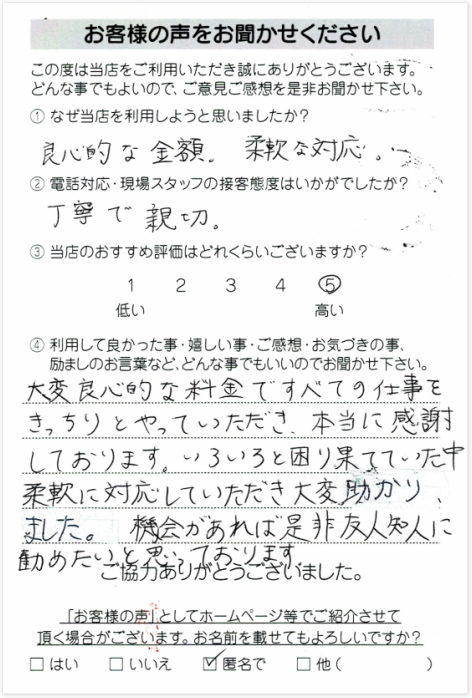 お客様の声をお聞かせください
この度は当店をご利用いただき誠にありがとうございます。
どんな事でもよいので、ご意見ご感想を是非お聞かせ下さい。
① なぜ当店を利用しようと思いましたか?
良心的な金額。 柔軟な対応。
② 電話対応・現場スタッフの接客態度はいかがでしたか?
丁寧で親切。
③ 当店のおすすめ評価はどれくらいございますか?
1 2 3 4 ⑤
低い 高い
④ 利用して良かった事・嬉しい事・ご感想・お気づきの事、
励ましのお言葉など、どんな事でもいいのでお聞かせ下さい。
大変良心的な料金ですべての仕事を
きっちりとやっていただき、本当に感謝
しております。いろいろと困り果てていた中
柔軟に対応していただき大変助かり、
ました。 機会があれば是非友人知人に
勧めたいと思っております。
ご協力ありがとうございました。
「お客様の声」としてホームページ等でご紹介させて
頂く場合がございます。お名前を載せてもよろしいですか?
□ はい □ いいえ ☑ 匿名で □ 他( )